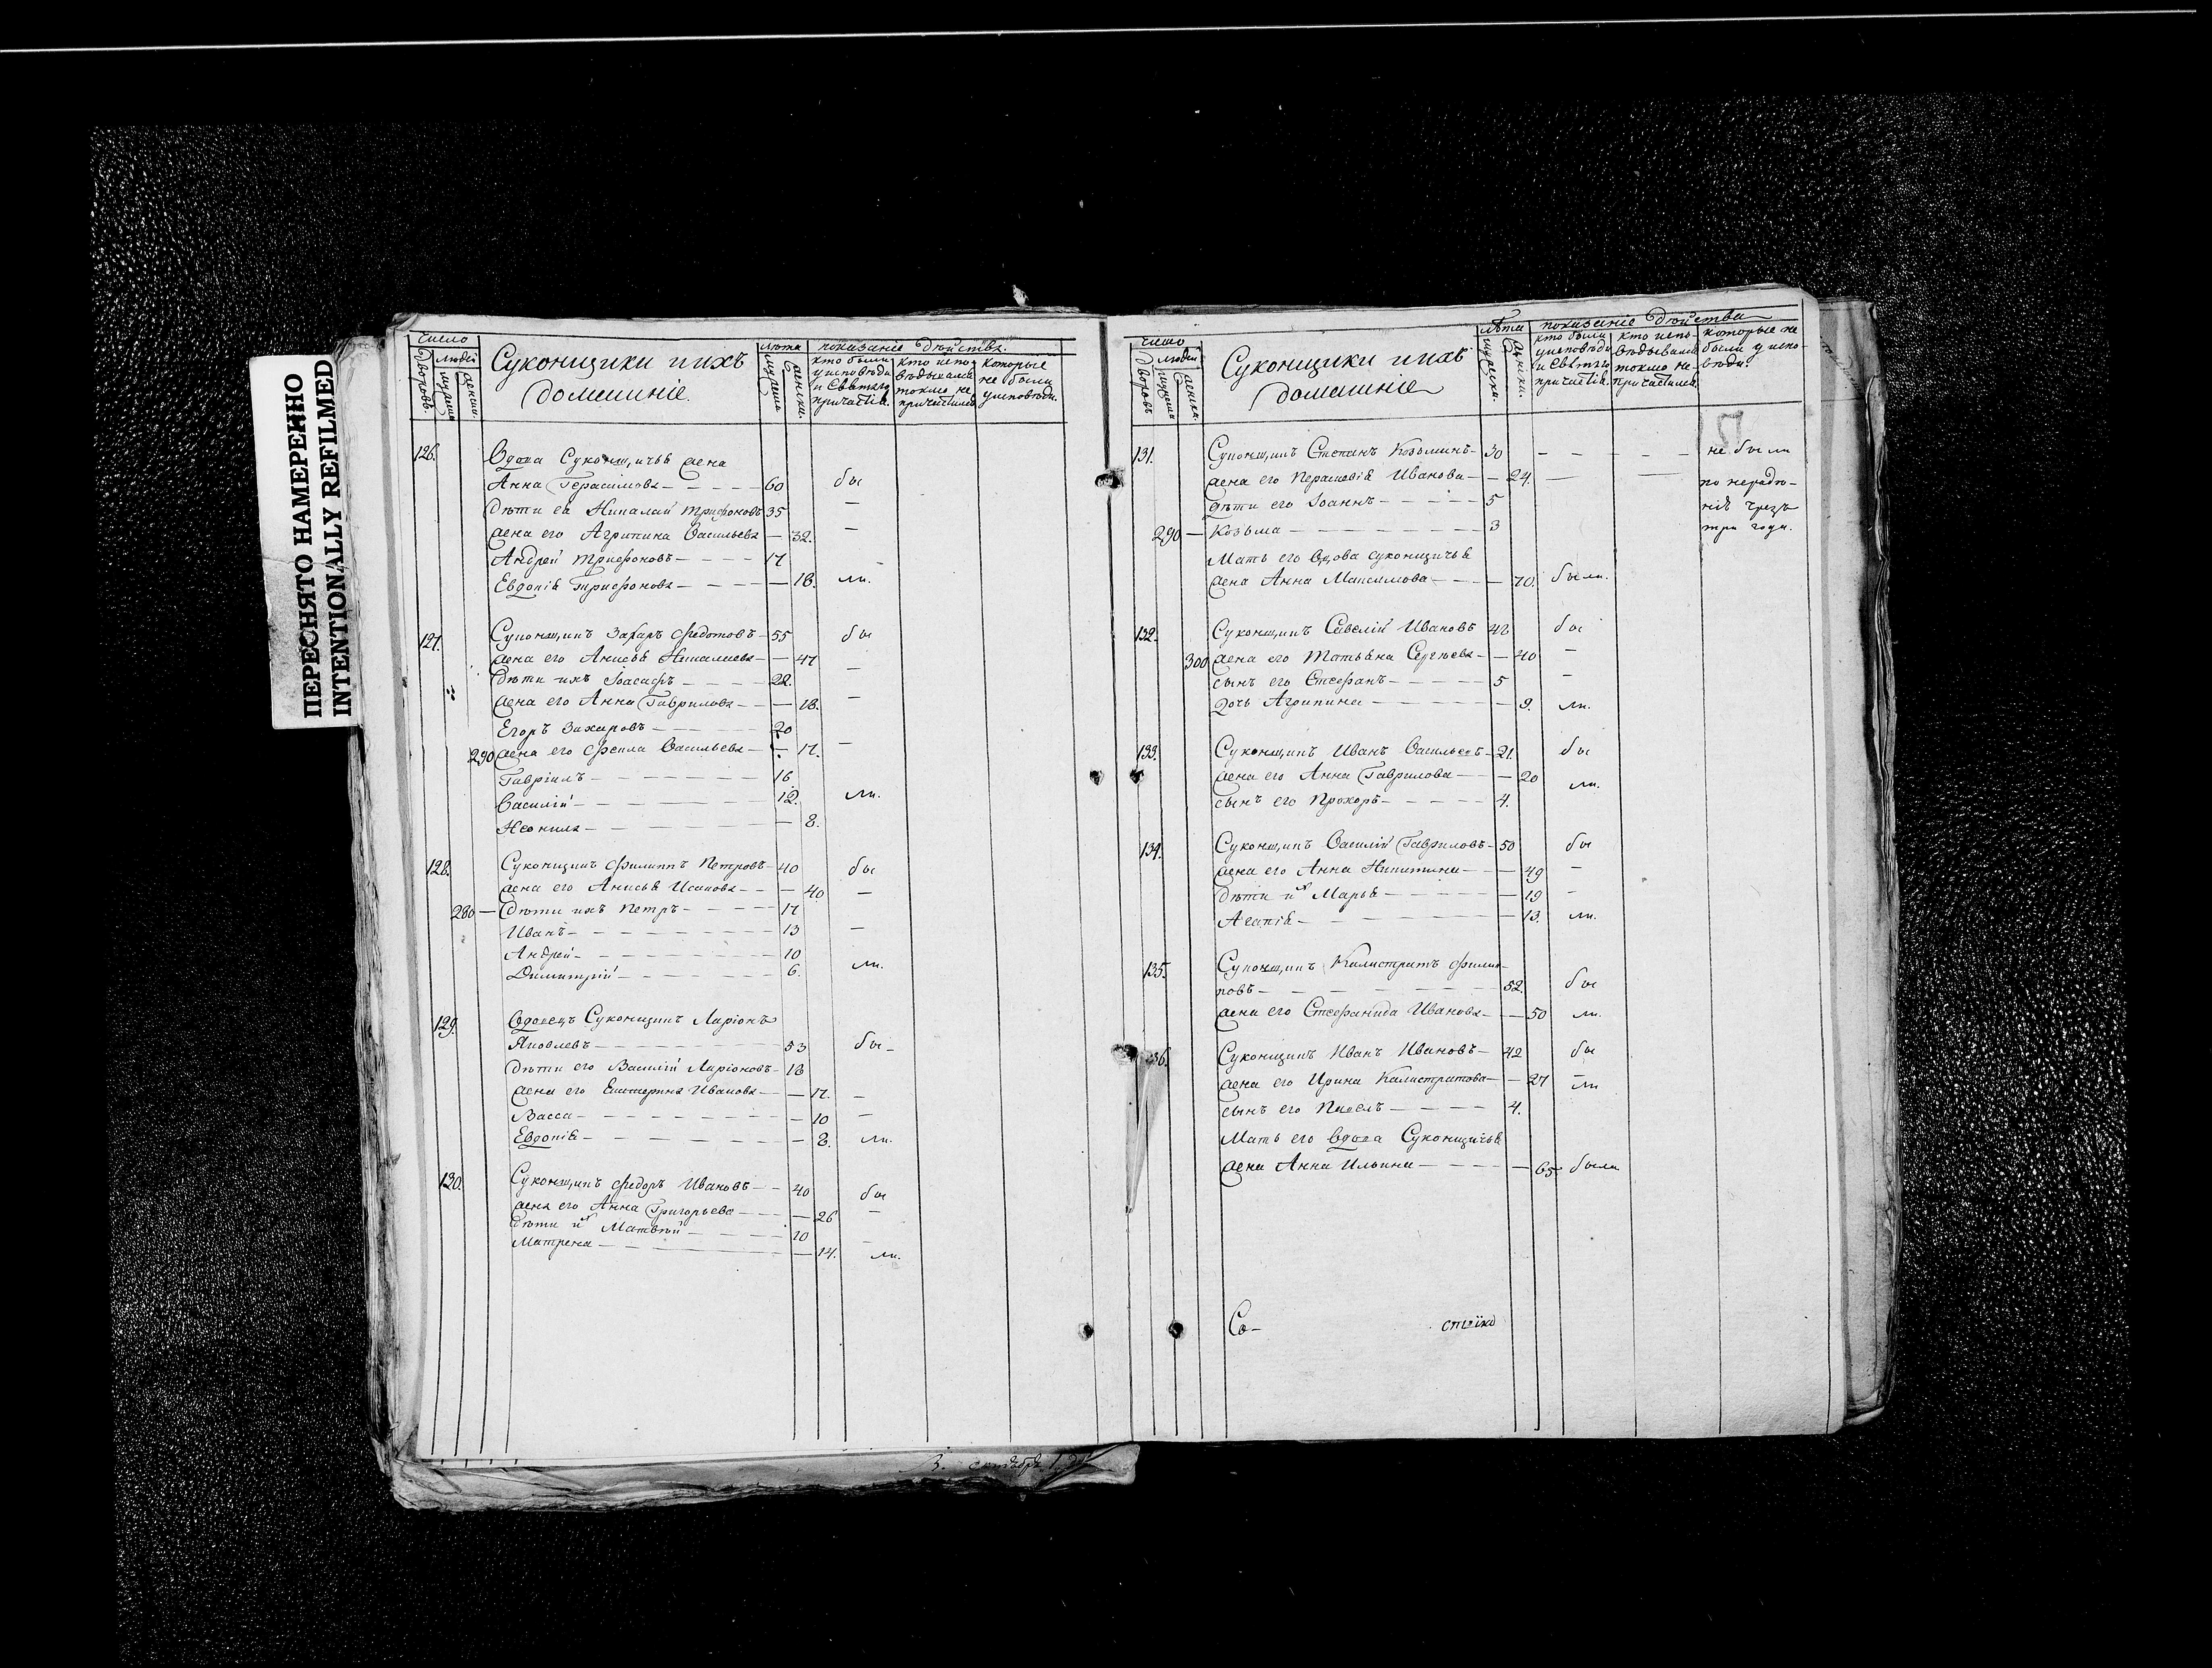 ПЕРЕСНЯТО НАМЕРЕННО
INTENTIONALLY REFILMED
число
людей
Дворовъ.
мужеска
женска.
Суконщики и ихъ
домашніе.
лѣта
мужеска
женска.
показаніе дѣйства.
кто были у исповѣди и святаго причастія.
кто исповѣдывался токмо не причастился
которые не были у исповѣди.
126. Вдова Суконщичья жена
Анна Герасимова — 60 бы
Дѣти ея Николай Трифоновъ 35 —
жена его Агрипина Васильева — 32. —
Андрей Трифоновъ — 17 —
Евдокія Трифонова — 18. ли.
127. Суконщикъ Захаръ Федотовъ — 55 бы
жена его Анисья Николаева — 47 —
Дѣти ихъ Іоасафъ — 22.
жена его Анна Гаврилова — 18. —
Егоръ Захаровъ — 20
290 жена его Фекла Васильева — 17. —
Гавріилъ — 16
Василій — 12. ли.
Неонила — 8.
128. Суконщикъ Филиппъ Петровъ — 40 бы
жена его Анисья Исакова — 40 —
280 — Дѣти ихъ Петръ — 17
Иванъ — 13 —
Андрей — 10
Димитрій — 6. ли.
129. Вдовецъ Суконщикъ Ларіонъ
Яковлевъ — 53 бы —
Дѣти его Василій Ларіоновъ — 18
жена его Екатерина Иванова — 17. —
Васса — 10 —
Евдокія — 8. ли.
130. Суконщикъ Федоръ Ивановъ — 40 бы
жена его Анна Григорьева — 26 —
Дѣти ихъ Матвѣй — 10 —
Матрена — 14. ли.
число
людей
Дворовъ
мужеска
женска.
Суконщики и ихъ
домашніе
лѣта
мужеска.
женска.
показаніе дѣйства
кто были у исповѣди и святаго причастія.
кто исповѣдывался токмо не причастился.
которые не были у исповѣди.
131. Суконщикъ Степанъ Козьминъ — 30 — — — — не были
жена его Парасковія Иванова — 24. — — по нерадѣ-
Дѣти его Іоаннъ — 5 ніѣ чрезъ
290 — Козьма — 3 три года.
Мать его вдова суконщичья
жена Анна Максимова — 70. были.
132. Суконщикъ Савелій Ивановъ 42 бы
300 жена его Татьяна Сергѣева — 40 —
сынъ его Стефанъ — 5 —
Дочь Агрипина — 9. ли.
133. Суконщикъ Иванъ Васильевъ — 21. бы
жена его Анна Гаврилова — 20 ли.
сынъ его Прохоръ — 4.
134. Суконщикъ Василій Гавриловъ — 50 бы
жена его Анна Никитина — 49 —
Дѣти ихъ Марья — 19 —
Агапія — 13. ли.
135. Суконщикъ Калистратъ Филип-
повъ — 52. бы
жена его Стефанида Иванова — 50 ли.
136. Суконщикъ Иванъ Ивановъ — 42 бы
жена его Ирина Калистратова — 27 — ли
сынъ его Павелъ — 4.
Мать его вдова Суконщичья
жена Анна Ильина — 65 были
Со-